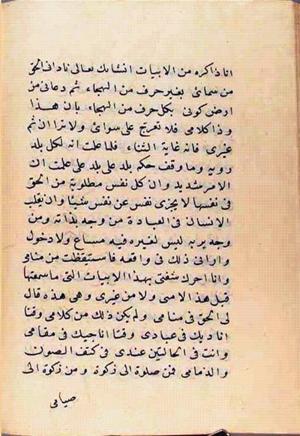 انا ذاكره من الابيات انشدنيك تعالى ناداني الحق
من سمائى بغير حرف من الهجاء ثم دعانى من
ارض كونى بكل حرف من الهجاء بان هذا
وذا كلامى فلا تعرج على سوائى ولا ترا ان ثم
غيرى فانه غاية الثناء فلما علمت انه لكل بلد
رويه وما وقف حكم بلد على بلد على علمت ان
الامر شديد وان كل نفس مطلوبة من الحق
فى نفسها لا يجزى نفس عن نفس شيئا وان تقلب
الانسان فى العبادة من وجه بذاته ومن
وجه بربه ليس لغيره فيه مساغ ولا دخول
وارانى ذلك فى واقعة فاستيقظت من منامى
وانا احرك شفتى بهذا الابيات التى ما سمعتها
قبل هذا الا منى ولا من غيرى وهى هذه قال
لى الحق فى منامى ولم يكن ذلك من كلامى وقتا
اناديك فى عبادى وقتا اناجيك فى مقامى
وانت فى الحالتين عندى فى كنف الصون
والذمامى فمن صلوة الى زكوة ومن زكوة الى
صيامى